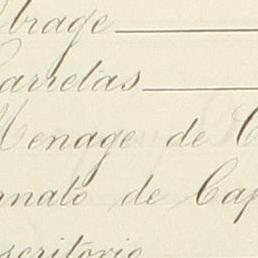 brage
Carretas
Menage de C
rnato de Cap
scritorio